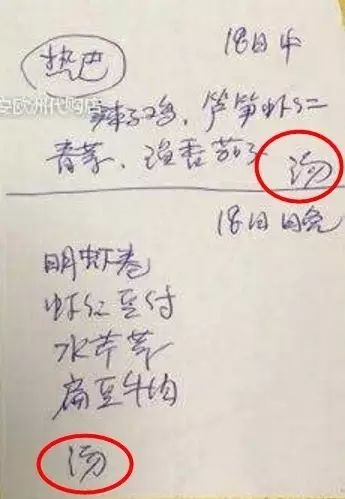 18日中
热巴
安欧洲代购店
辣子鸡、芦笋虾仁
青菜、鱼香茄子 汤
18日日晚
明虾卷
虾仁豆付
水芹菜
扁豆牛肉
汤